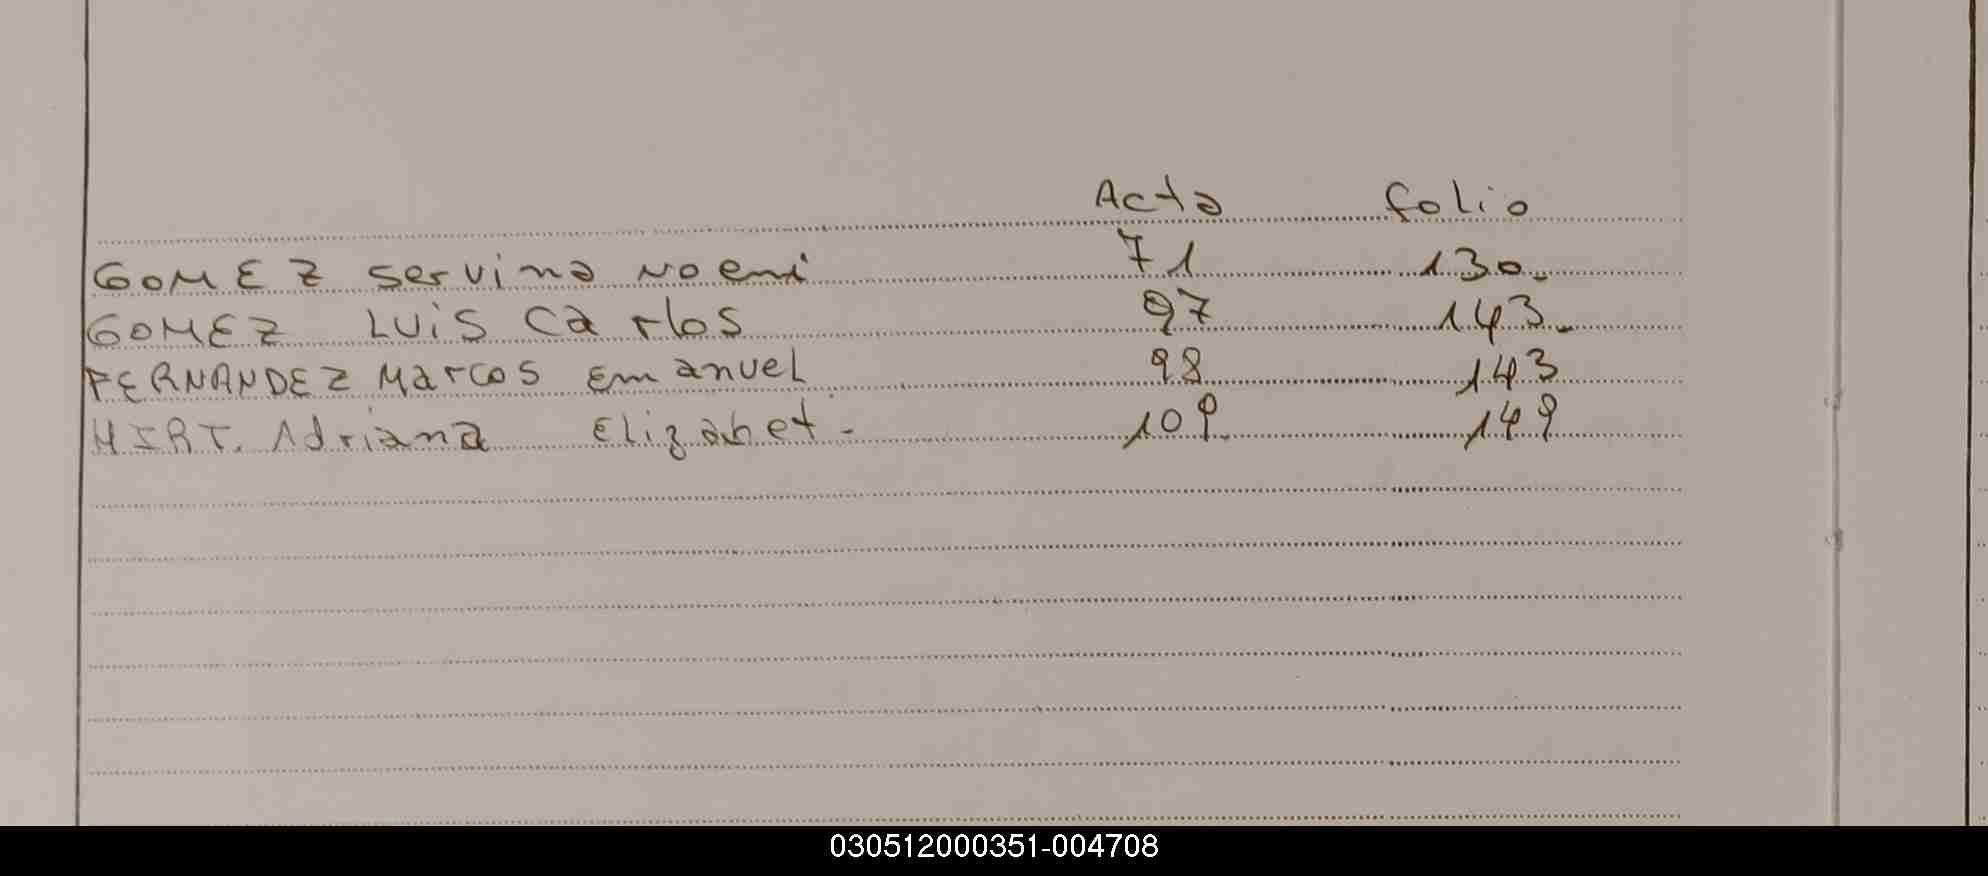 Acta folio
GOMEZ Servina Noemi 71 130-
GOMEZ LUiS Carlos 97 143-
FERNANDEZ Marcos Emanuel 98 143
HIRT. Adriana Elizabet - 109. 149
030512000351-004708